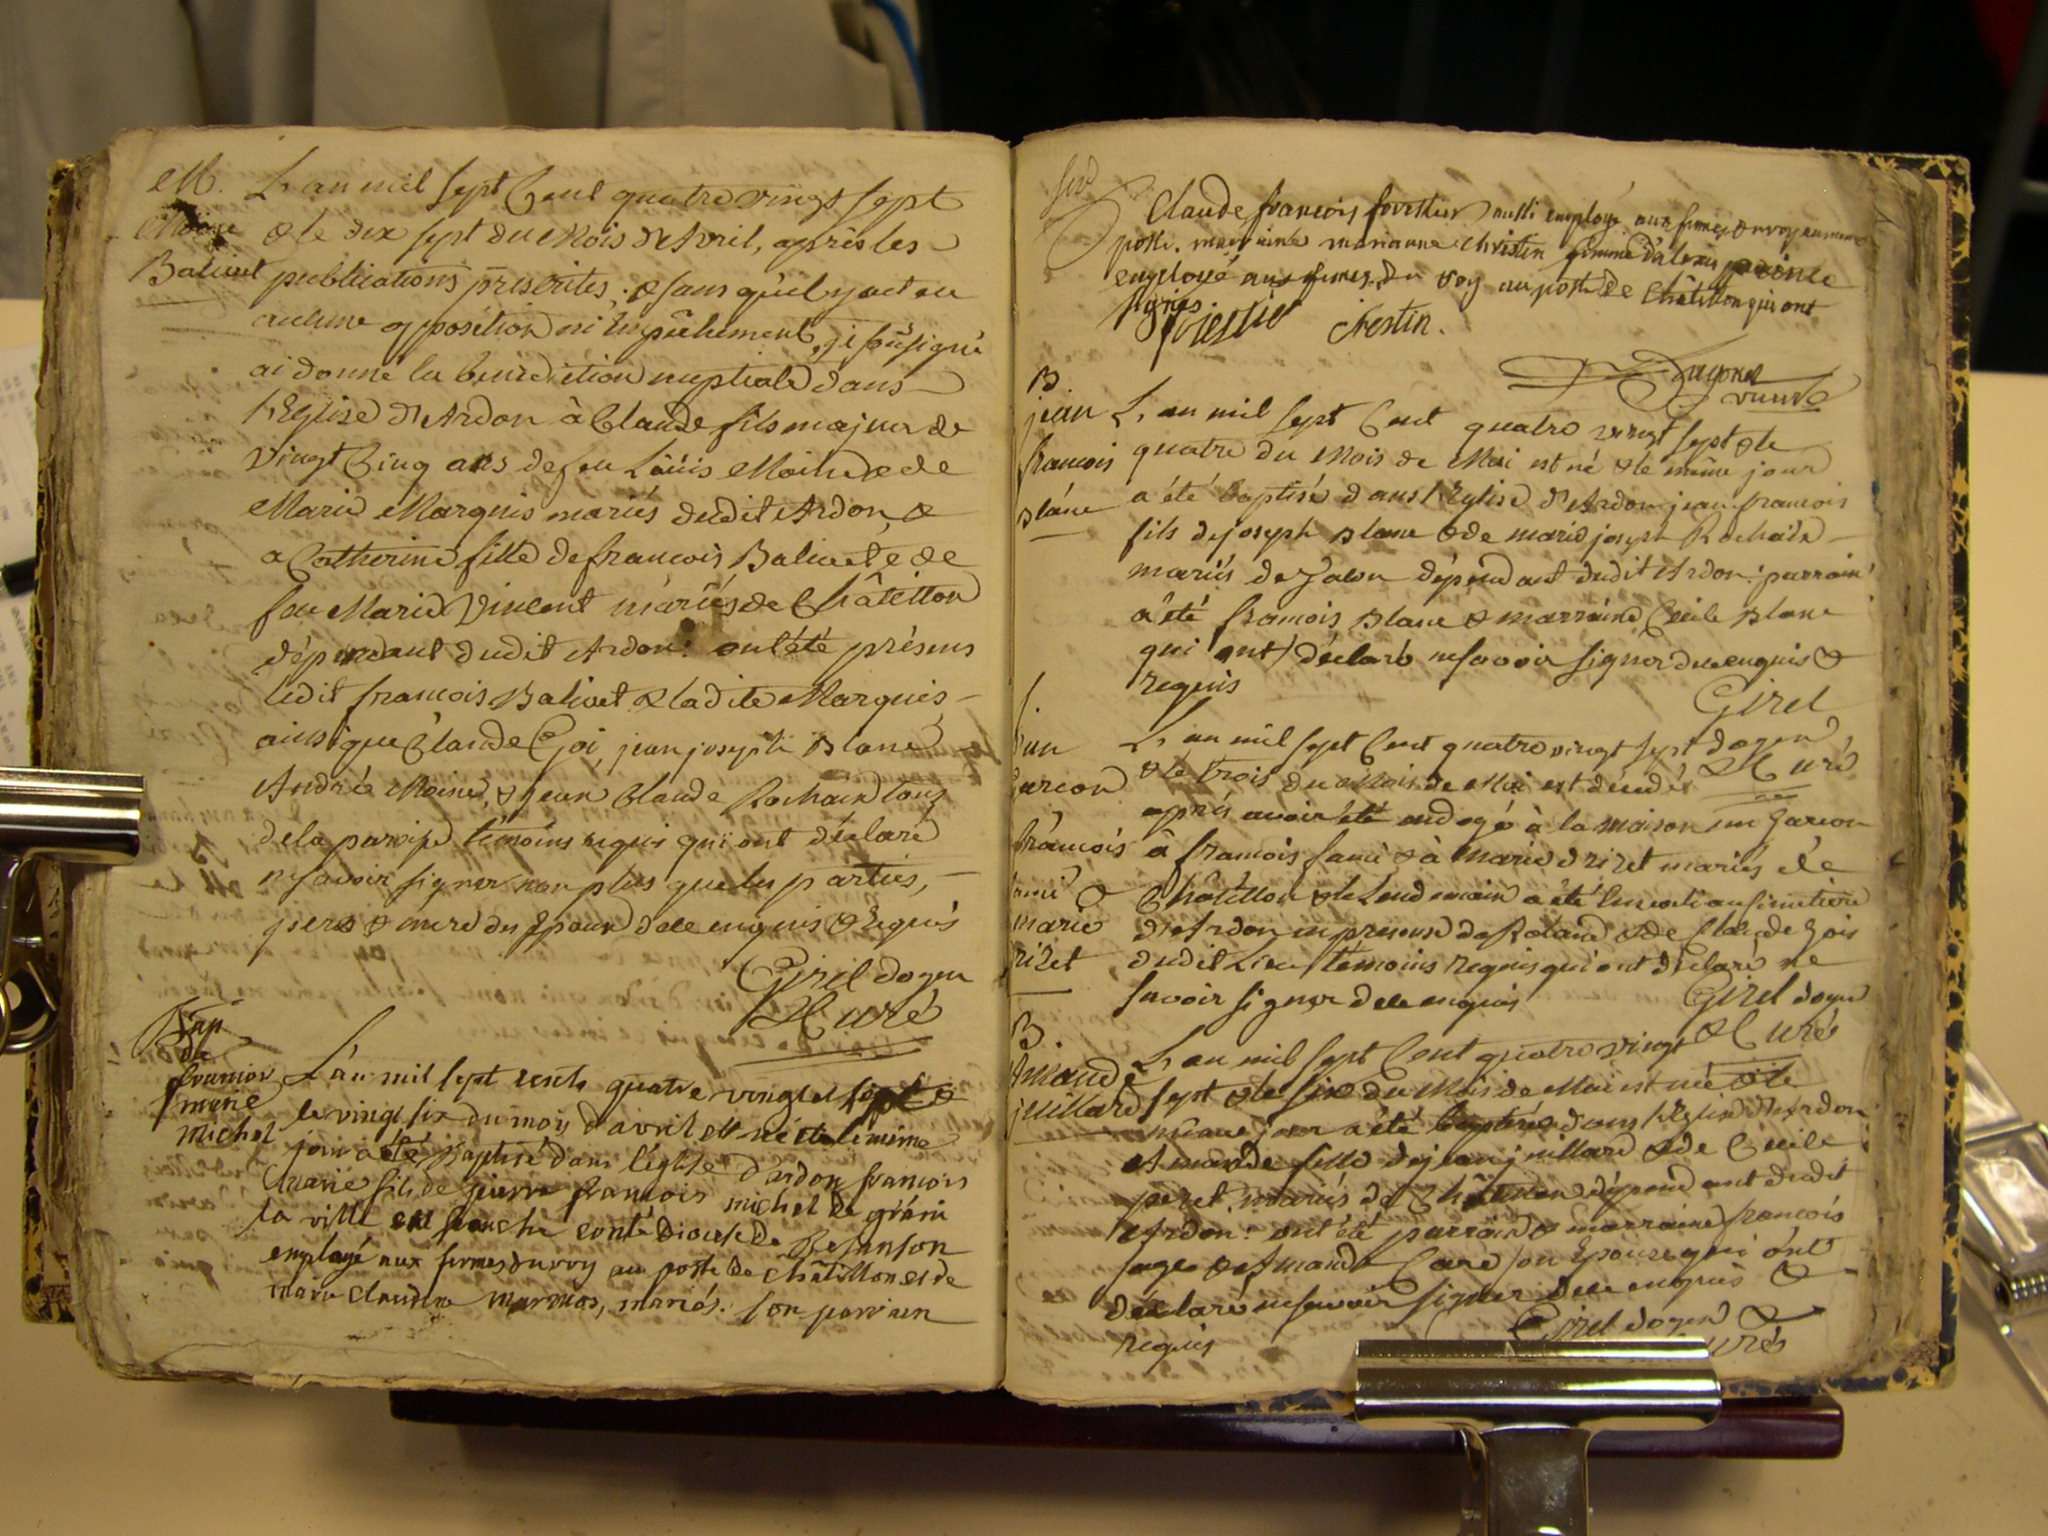 M.
Moine
Balivet
L'an mil sept Cent quatre vingt sept
& le dix sept du Mois d'Avril, après les
publications prescrites, & sans qu'il y ait eu
aucune opposition ni Empêchement, je soûsigné
ai donné la bénédiction nuptiale dans
l'Eglise d'Ardon à Claude fils majeur de
vingt Cinq ans de feu Loüis Moine & de
Marie Marquis mariés dudit Ardon, &
a Catherine fille de francois Balivet & de
feu Marie Vincent mariés de Châtillon
dépendant dudit Ardon: ont été présens
ledit francois Balivet & ladite Marquis
ainsi que Claude Goi, jean joseph Blanc
André Moine, & jean Claude Rochaix tous
de la paroisse témoins requis qui ont déclaré
ne savoir signer non plus que les parties,
pere & mere des Epoux de ce enquis & requis
Girel doyen
& Curé
Bap
de
francois
marie
michel
L'an mil sept cents quatre vingt et sept &
le vingt six du mois d'avril est né et le même
jour a été Baptisé dans l'église d'ardon francois
marie fils de pierre francois michel de
la ville en franche conté Diocese de Besanson
employé aux fermes du roy au poste de châtillon et de
marie claudine, mariés. Son parrain
Claude francois forestier aussi employé aux fermes du roy au meme
poste. marraine marianne christin femme d'alexis prince
employé aux fermes du roy au poste de Châtillon qui ont
signés
forestier
crestin.
B
jean
francois
Blanc
L'an mil sept Cent quatre vingt sept & le
quatre du Mois de Mai est né & le même jour
a été baptisé dans l'Eglise d'Ardon jean francois
fils de joseph Blanc & de marie joseph Rochaix
mariés de dépendant dudit Ardon: parrain
a été francois Blanc & marraine Cecile Blanc
qui ont déclaré ne savoir signer de ce enquis &
requis
Girel
doyen
& Curé
un
garcon
francois
&
marie
L'an mil sept Cent quatre vingt sept
& le trois du Mois de Mai est décédé
après avoir été ondoyé à la maison un garcon
à francois & à Marie mariés de
Châtillon & le Lendemain a été au cimetiere
d'Ardon en presence de Roland & de Claude Gois
dudit Lieu témoins requis qui ont déclaré ne
savoir signer de ce enquis
Girel doyen
& Curé
B
Amande
juillard
L'an mil sept Cent quatre vingt
sept & le six du Mois de Mai est née & le
même jour a été baptisée dans l'Eglise d'Ardon
Amande fille de jean juillard & de Cecile
peret mariés de Châtillon dépendant dudit
Ardon: ont été parrain & marraine francois
& Amande son Epouse qui ont
déclaré ne savoir signer de ce enquis &
requis
Girel doyen &
Curés